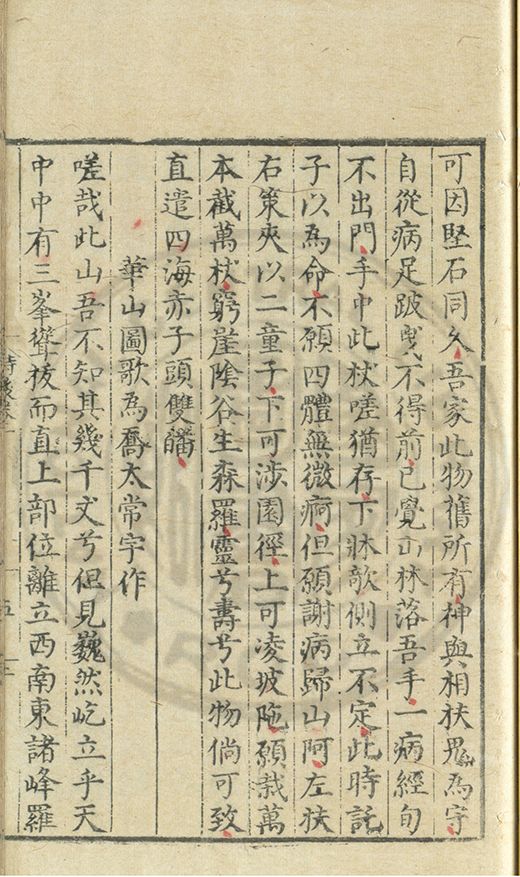 可因堅石同久吾家此物舊所有神與相扶鬼為守
自從病足跛曳不得前已覺山林落吾手一病經旬
不出門手中此杖嗟猶存下牀欹側立不定此時託
子以為命不願四體無微痾但願謝病歸山阿左扶
右策夾以二童子下可涉園徑上可凌坡陁願栽萬
本截萬杖窮崖陰谷生森羅靈兮壽兮此物倘可致
直遣四海赤子頭雙皤
華山圖歌為喬太常宇作
嗟哉此山吾不知其幾千丈兮但見巍然屹立乎天
中中有三峯聳拔而直上部位離立西南東諸峰羅